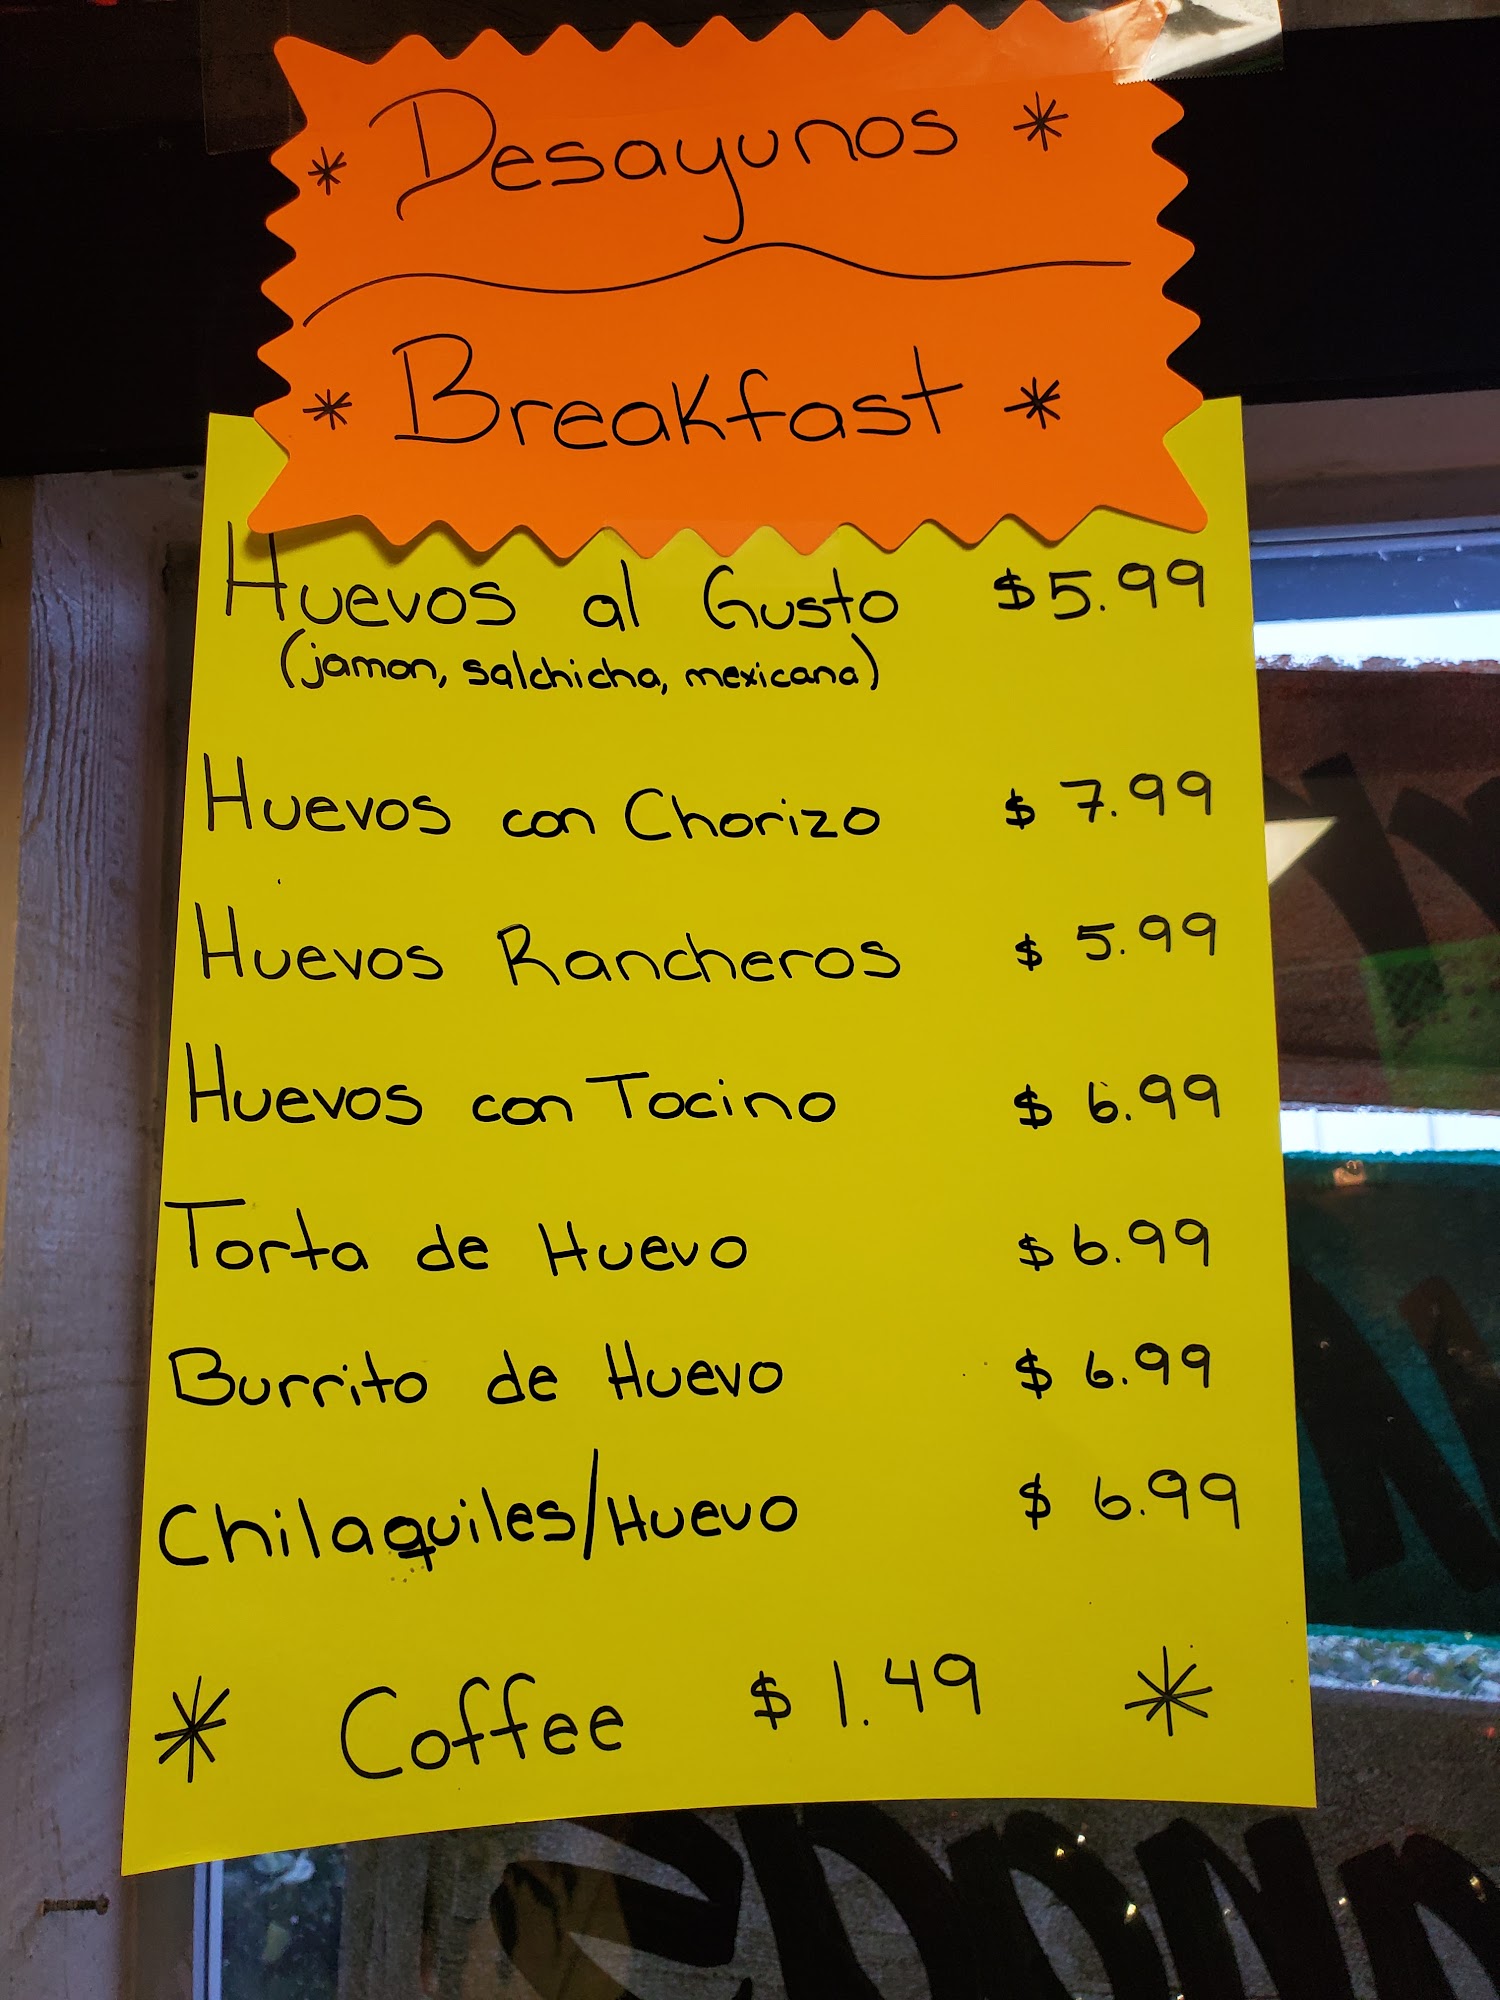 * Desayunos *
* Breakfast *
Huevos al Gusto $5.99
(jamon, salchicha, mexicana)
Huevos con Chorizo $7.99
Huevos Rancheros $5.99
Huevos con Tocino $6.99
Torta de Huevo $6.99
Burrito de Huevo $6.99
Chilaquiles/Huevo $6.99
* Coffee $1.49 *